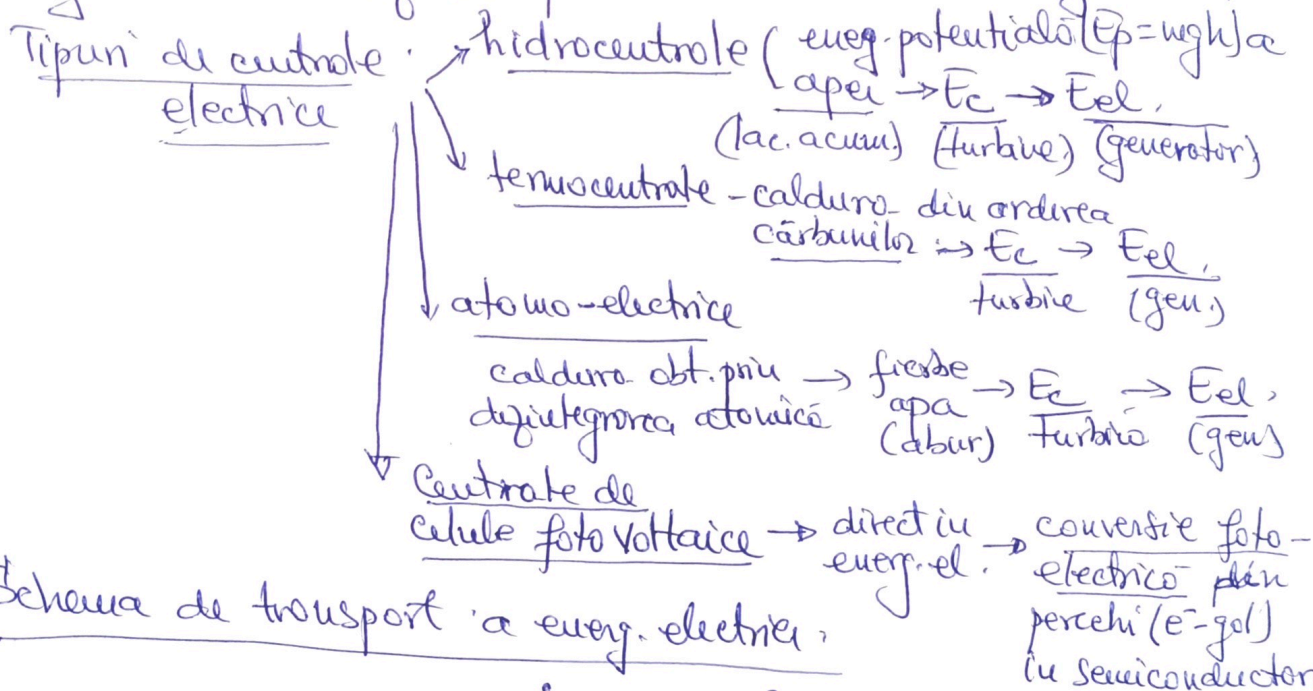 Tipuri de centrale
electrice
hidrocentrale ( energ. potențială (Ep=mgh) a
apei → Ec → Eel.
(lac. acum.) (turbine) (generator)
termocentrale - caldura din arderea
cărbunilor → Ec → Eel.
turbine (gen.)
atomo-electrice
caldura obt. prin → fierbe → Ec → Eel.
dezintegrarea atomică apa turbină (gen)
(abur)
Centrale de
celule fotovoltaice → direct in → conversie foto-
energ. el. electrică din
perechi (e⁻-gol)
in semiconductor
Schema de transport a energ. electrice.